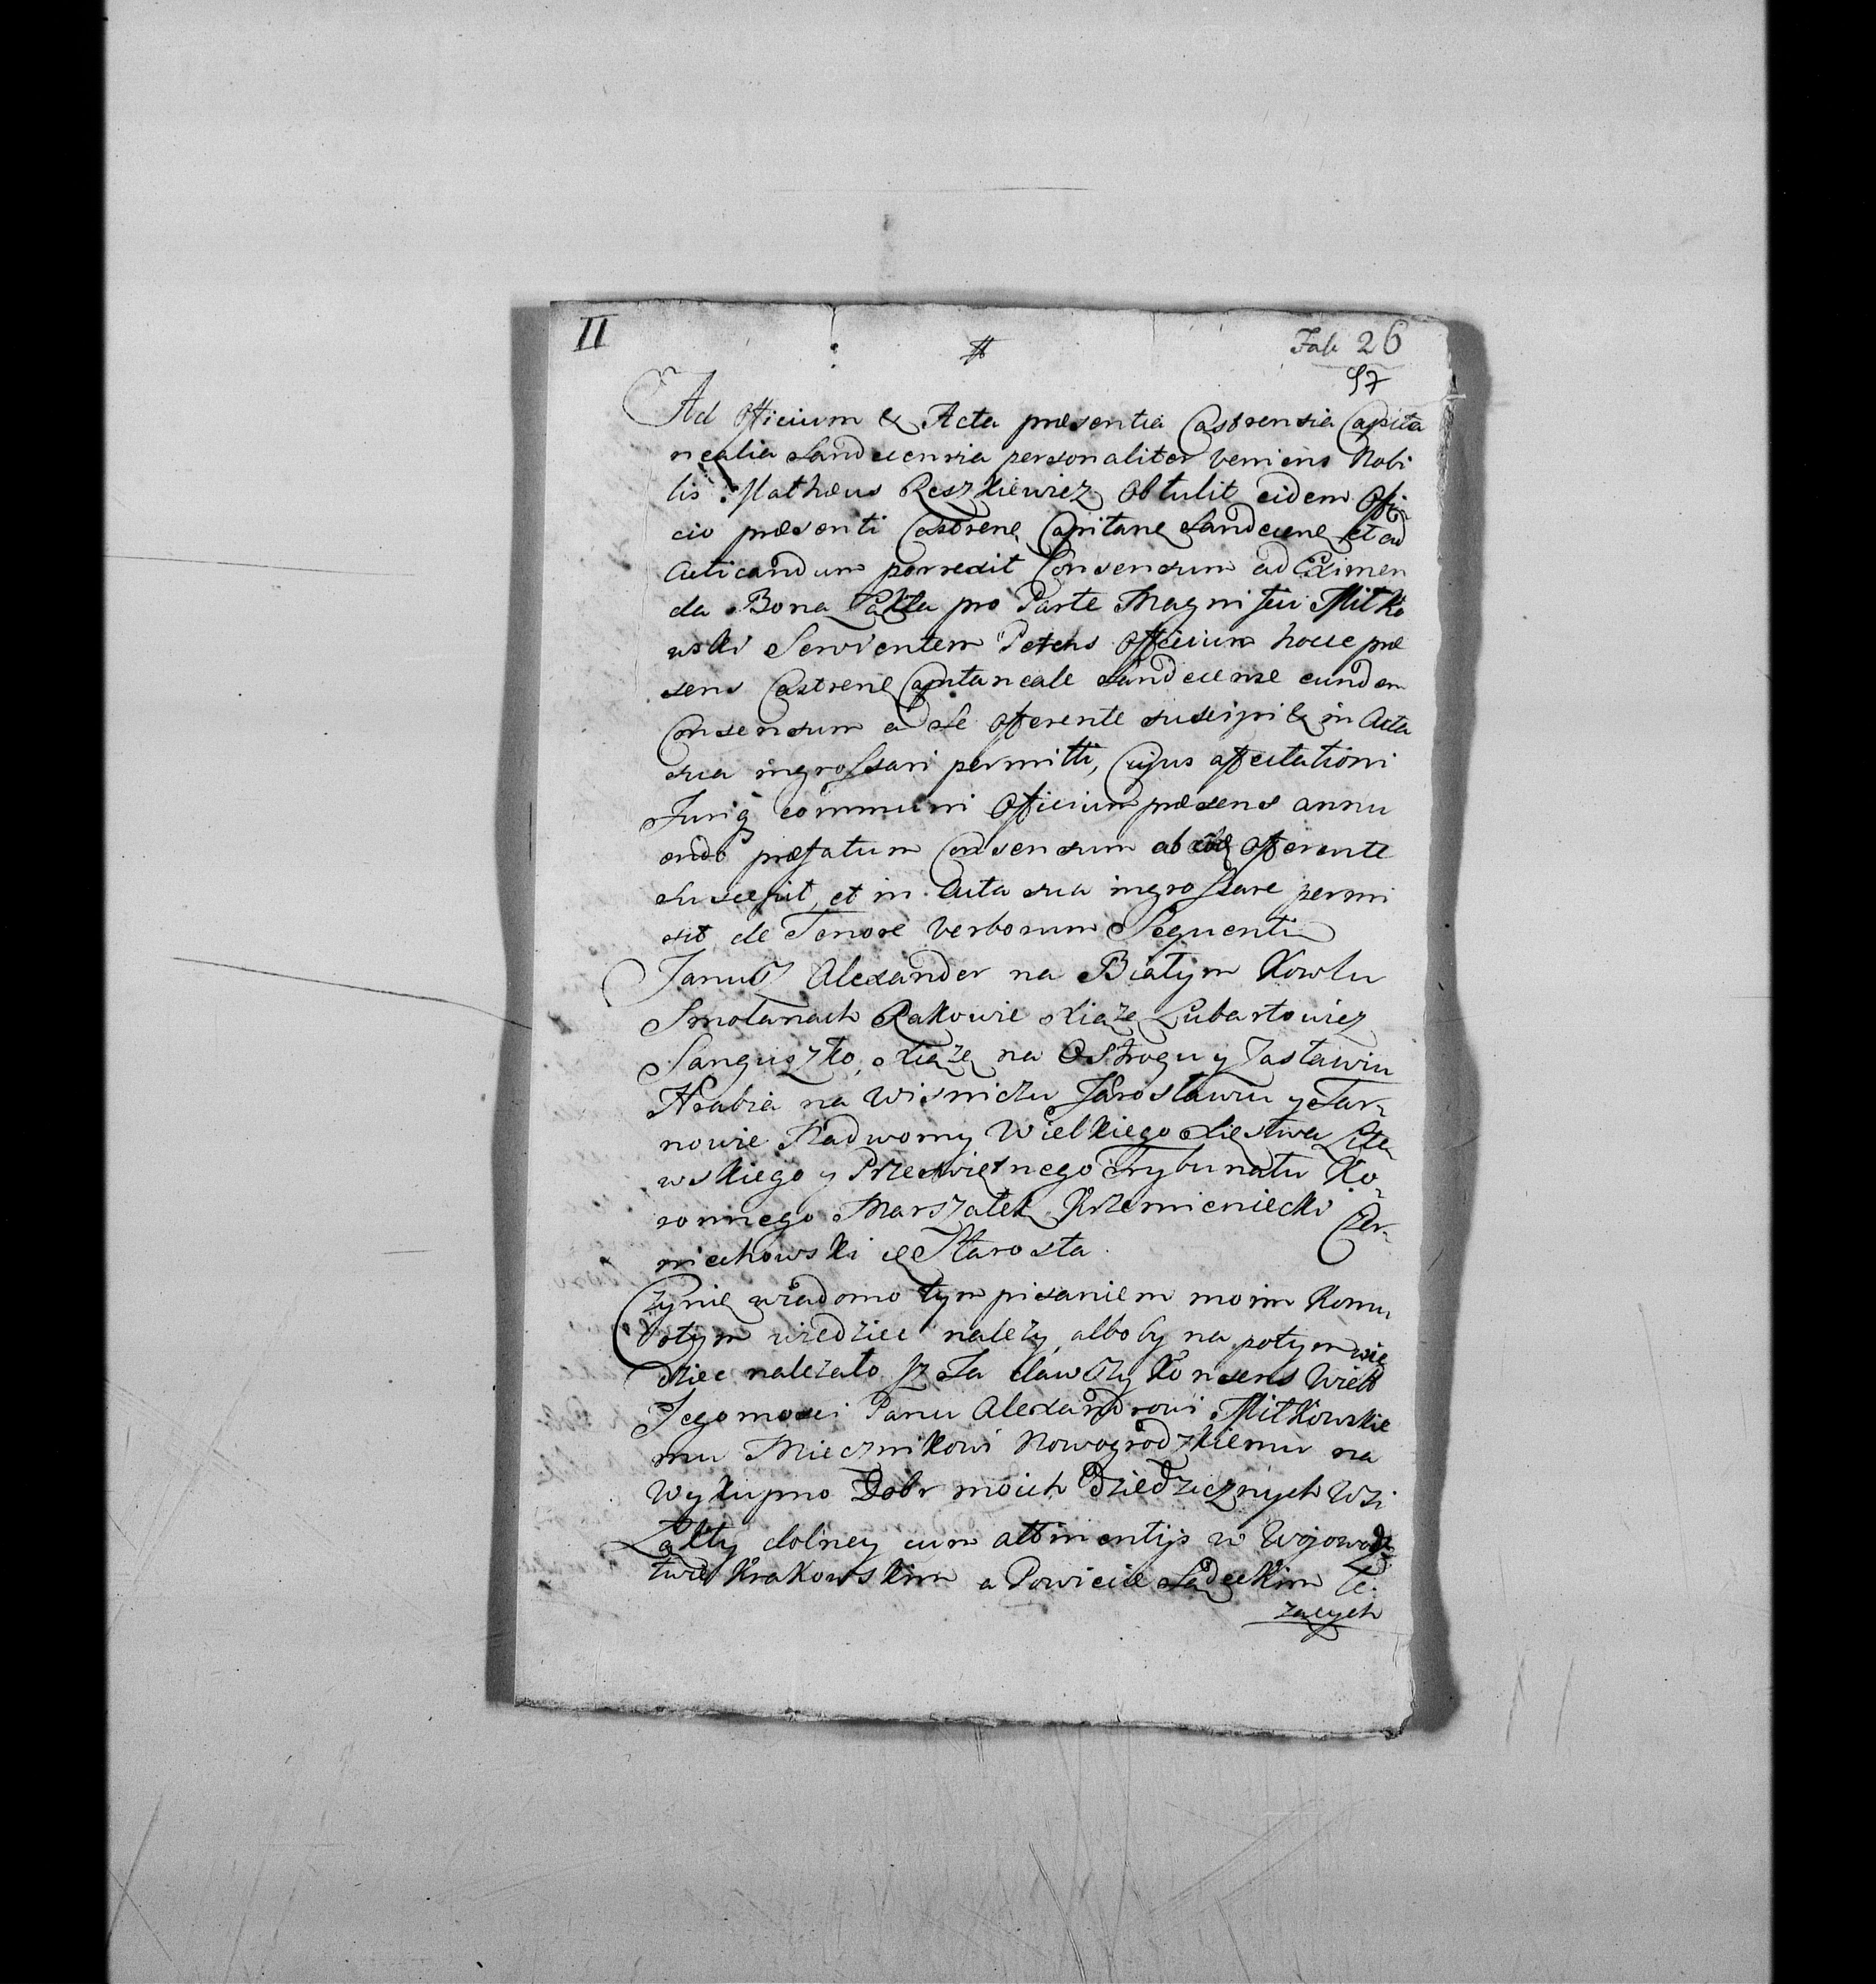 II
#
Fasc 26
57
Ad Officium & Acta præsentia Castrensia Capita
nealia Sandecensia personaliter veniens Nobi
lis Mathæus Reszkiewicz Obtulit eidem Offi
cio præsenti Castrenę Capitane Sandecenę et ad
Acticandum porrexit Consensum ad Eximen
da Bona Łąkta pro Parte Magnifici Miłko
wski Servientem Petens Officium hocce præ
sens Castrenę Capitaneale Sandecense eundem
Consensum a se offerente suscipi & in Acta
sua ingrossari permitti, Cujus affectationi
Juriq communi Officium præsens annu
endo præfatum Consensum ab eodę offerente
suscepit, et in Acta sua ingrossare permi
sit, de Tenore Verborum Sequenti
Janusz Alexander na Białym Kowlu
Smolanach Rakowie Xiąże Lubartowicz
Sanguszko, Xiąże na Ostrogu y Zasławiu
Hrabia na Wisniczu Jarosławiu y Tar-
nowie Nadworny Wielkiego Xięstwa Lite
wskiego y Przeswietnego Trybunału Ko-
ronnego Marszałek Krzemieniecki Czer-
niechowski &c Starosta.
Czynię wiadomo tym pisaniem moim Komu
otym wiedziec nalezy, alboby na potym wie
dziec nalezało, iz Ja dawszy Konsens Wielb
Jegomosci Panu Alexandrowi Miłkowskie
mu Miecznikowi Nowogrodzkiemu na
Wykupno Dobr moich Dziedzicznych Wsi
Łąkty dolney cum attinentijs w Wojewodz
twie Krakowskim a Powiecie Sądeckim le-
zących